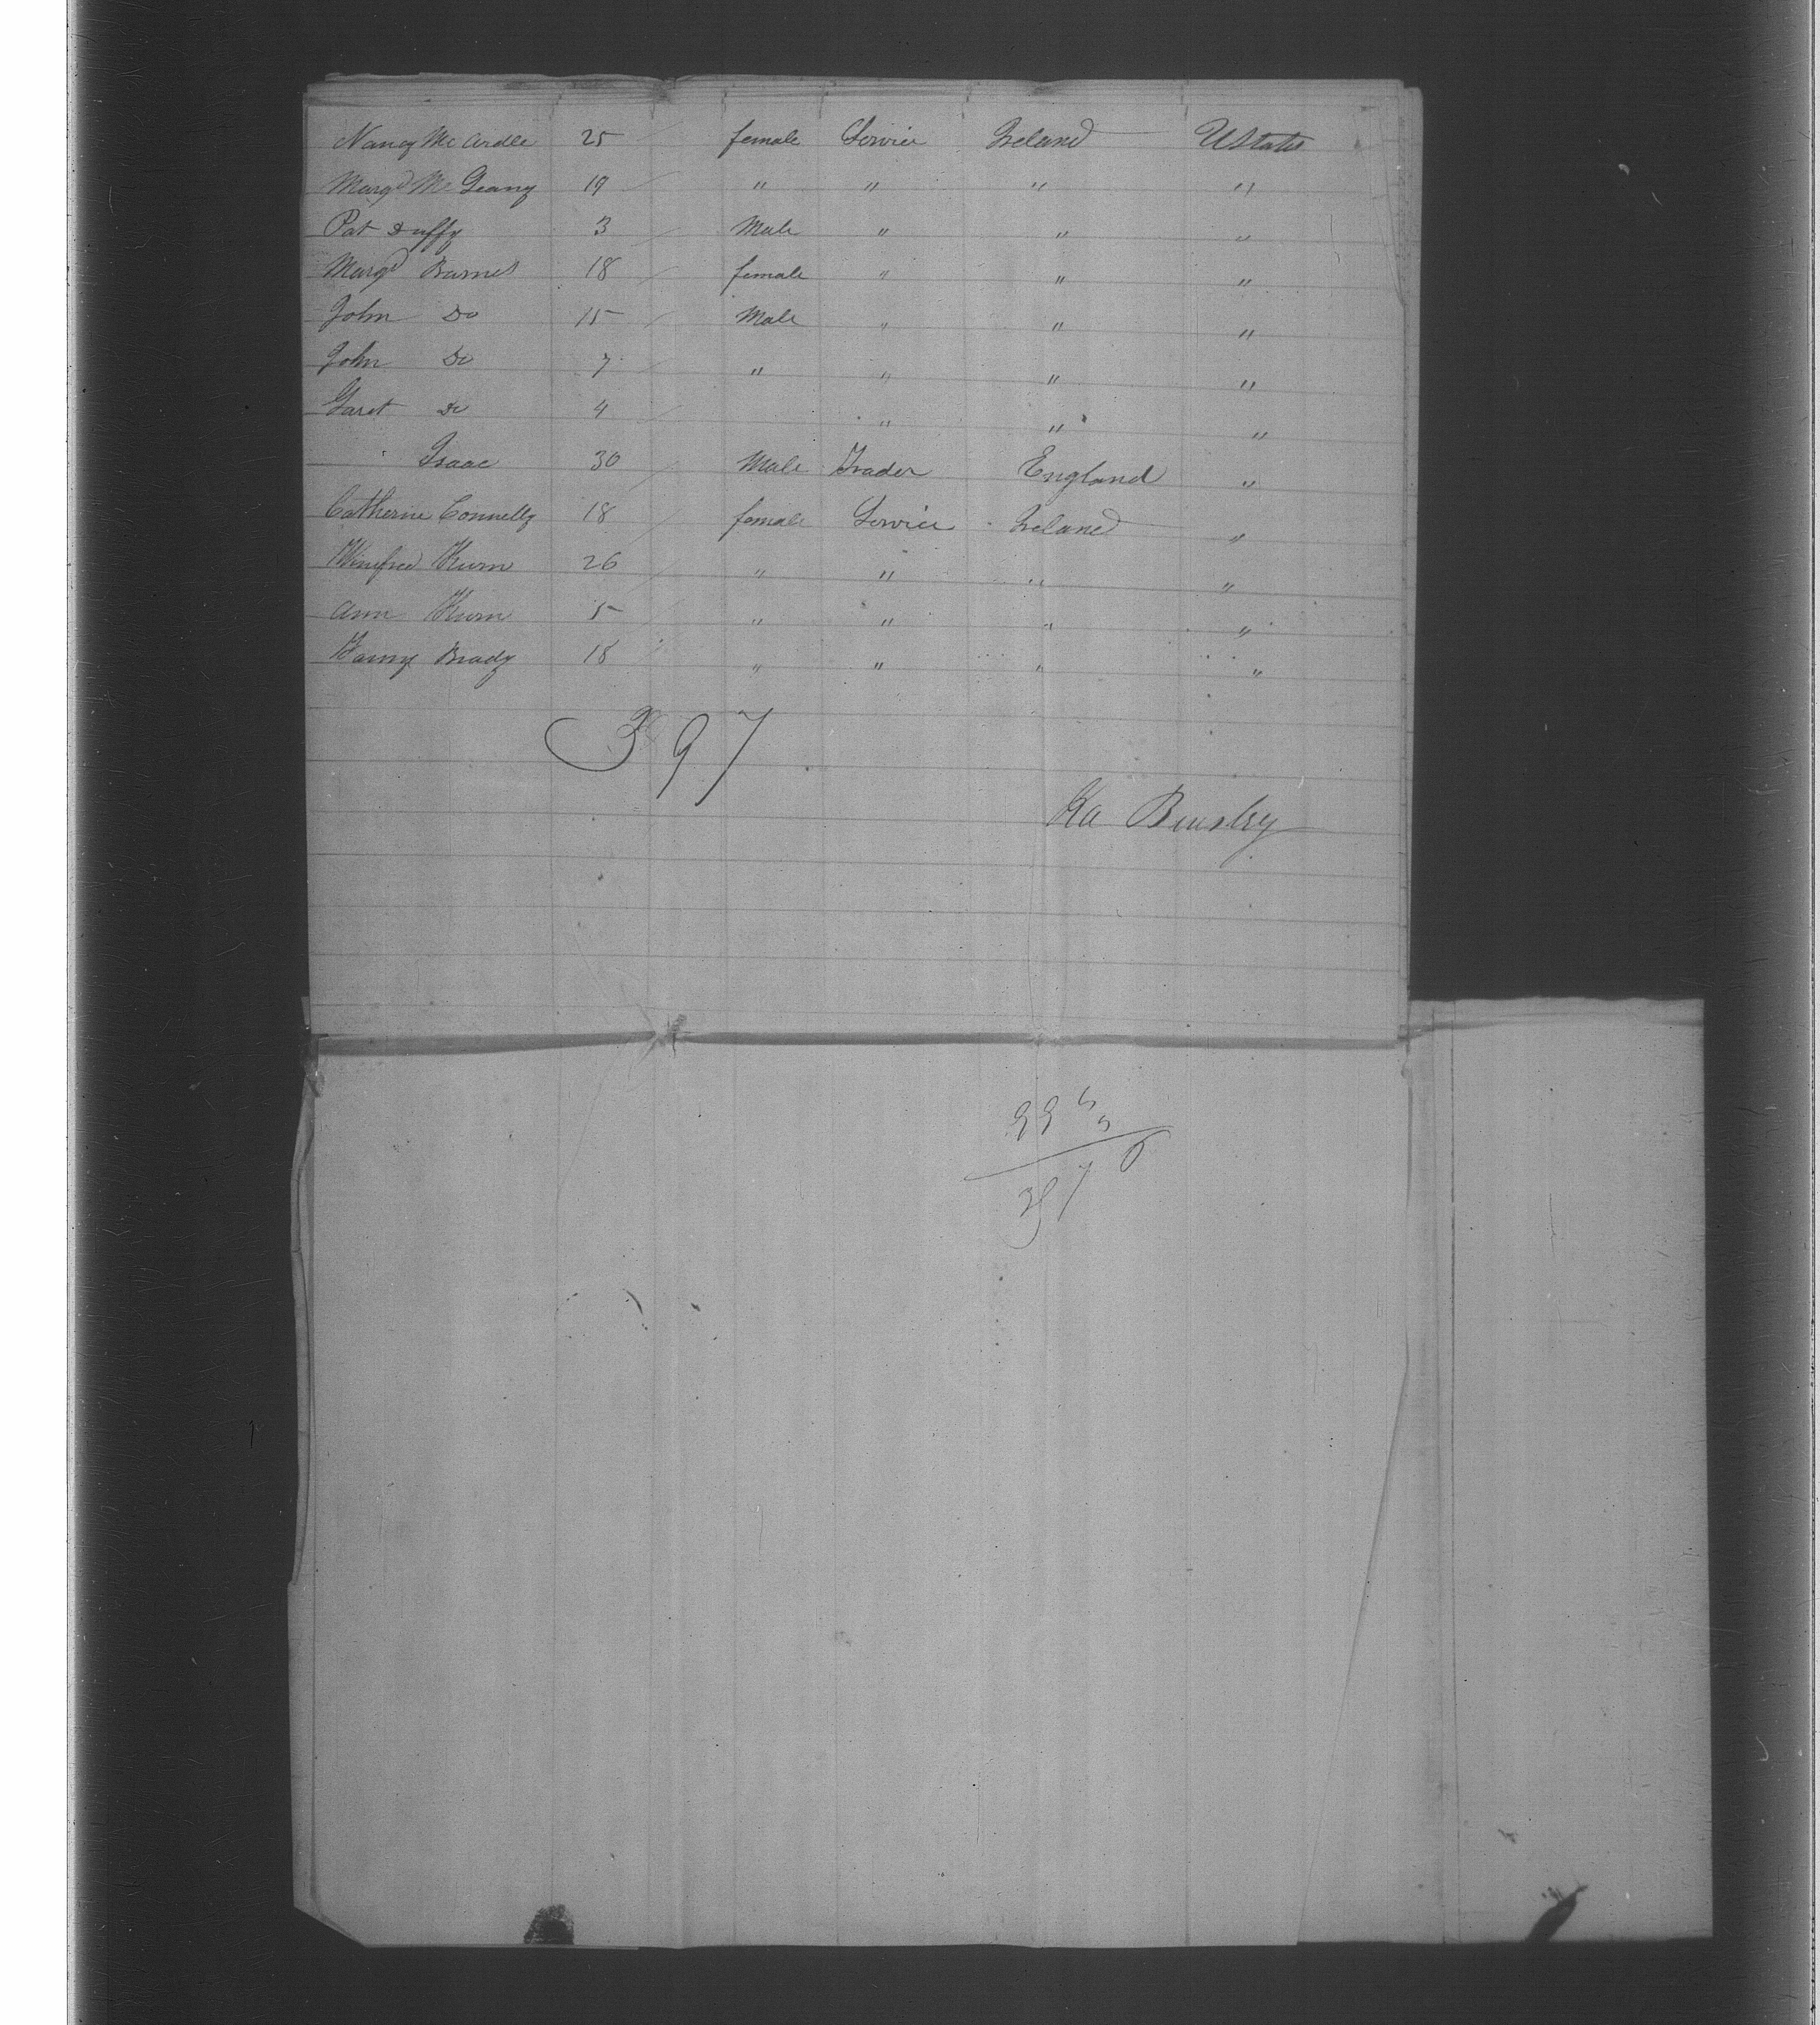 Nancy McArdle 25 female Service Ireland U States
Margt McGeany 19 " " " "
Pat Duffy 3 Male " " "
Margt Barnes 18 female " " "
John Do 15 Male " " "
John Do 7 " " " "
Garet Do 4 " " "
Isaac 30 Male Trader England "
Catherine Connelly 18 female Service Ireland "
Winifred 26 " " " "
Ann 5 " " " "
Brady 18 " " " "
397